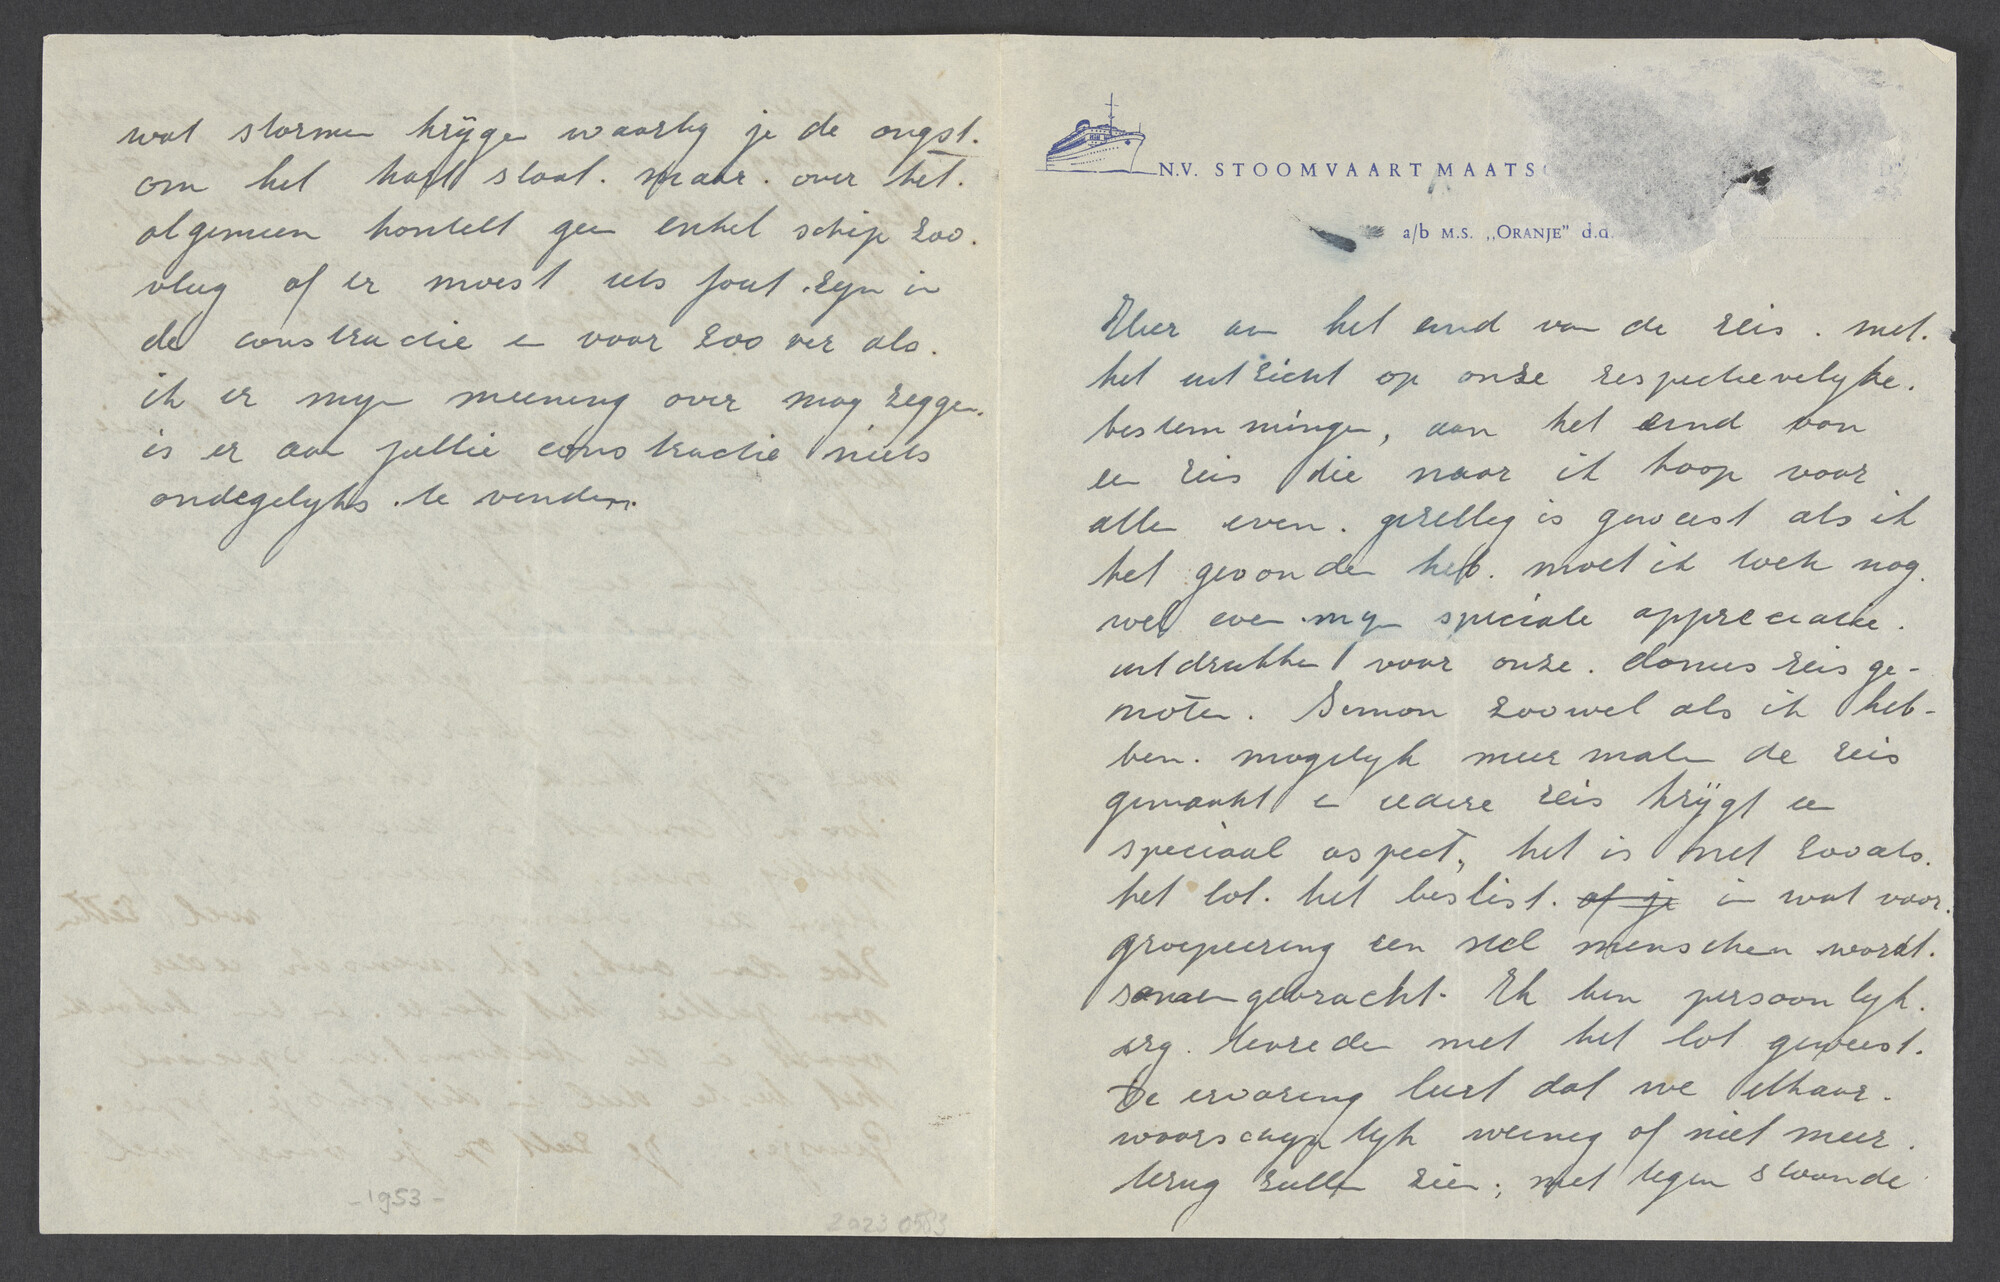 wat stormen krijgen waarbij je de angst.
om het hart slaat. maar. over het.
algemeen kantelt geen enkel schip zoo.
vlug of er moest iets fout zijn in
de constructie en voor zoo ver als.
ik er mijn meening over mag zeggen.
is er aan jullie constructie niets
ondegelijks te vinden.
-1953-
2023 0583
N.V. STOOMVAART MAATSC
a/b M.S. „ORANJE" d.d.
Hier aan het eind van de reis. met.
het uitzicht op onze respectievelijke.
bestemmingen, aan het eind van
een reis die naar ik hoop voor
allen even. gezellig is geweest als ik
het gevonden heb. moet ik toch nog.
wel even mijn speciale appreciatie.
uitdrukken voor onze. dames reisge-
noten. Simon zoowel als ik heb-
ben. mogelijk meermalen de reis
gemaakt en iedere reis krijgt een
speciaal aspect, het is net zooals.
het lot. het beslist. of je in wat voor.
groepeering een stel menschen wordt.
samengebracht. Ik ben persoonlijk.
erg. tevreden met het lot geweest.
De ervaring leert dat we elkaar.
waarschijnlijk weinig of niet meer.
terug zullen zien; niet tegenstaande